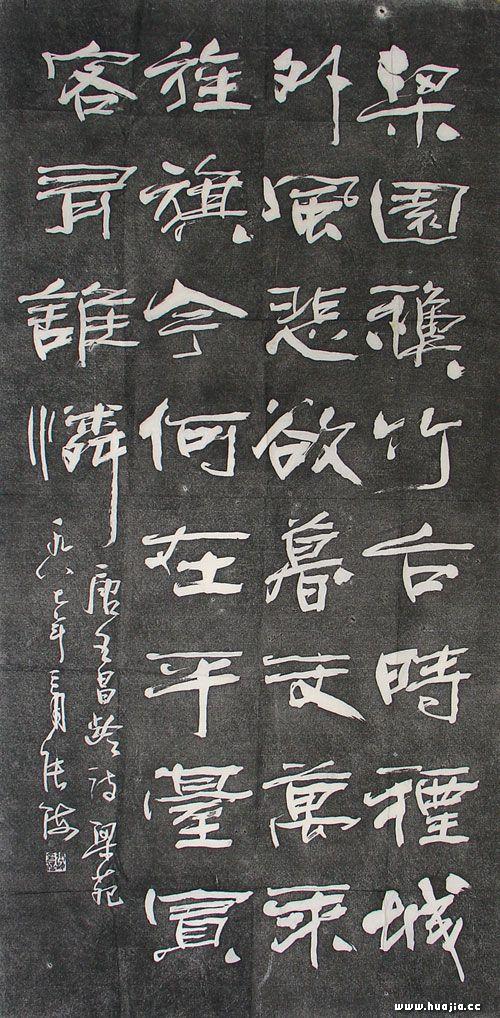 梁園秋竹古時煙城
外風悲欲暮天萬乘
旌旗今何在平臺賓
客有誰憐
唐王昌齡詩梁苑
一九八七年三月張海
www.huajia.cc